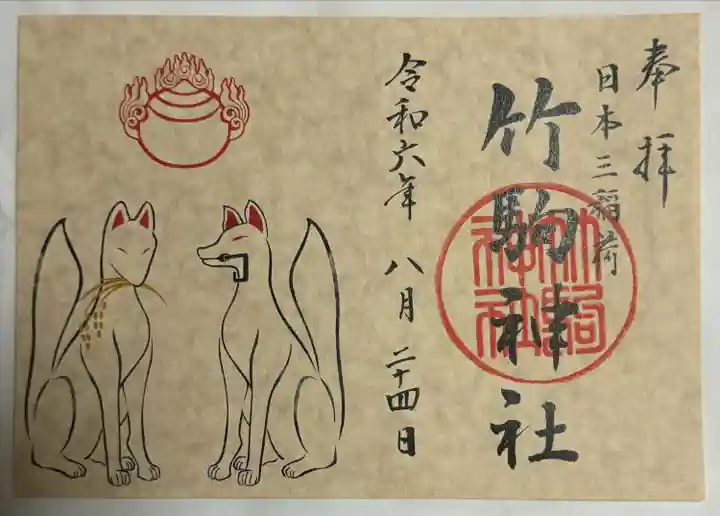 奉拝
日本三稲荷
竹駒神社
竹駒神社
令和六年 八月 二十四日